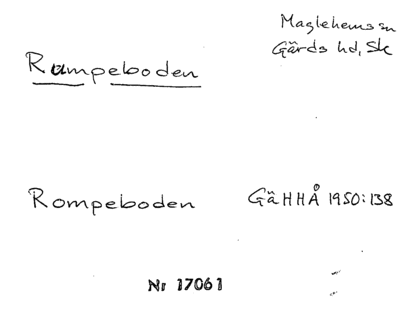 Maglehems sn
Gärds hd, Sk
Rumpeboden
Rompeboden GäHHÅ 1950:138
Nr 17061